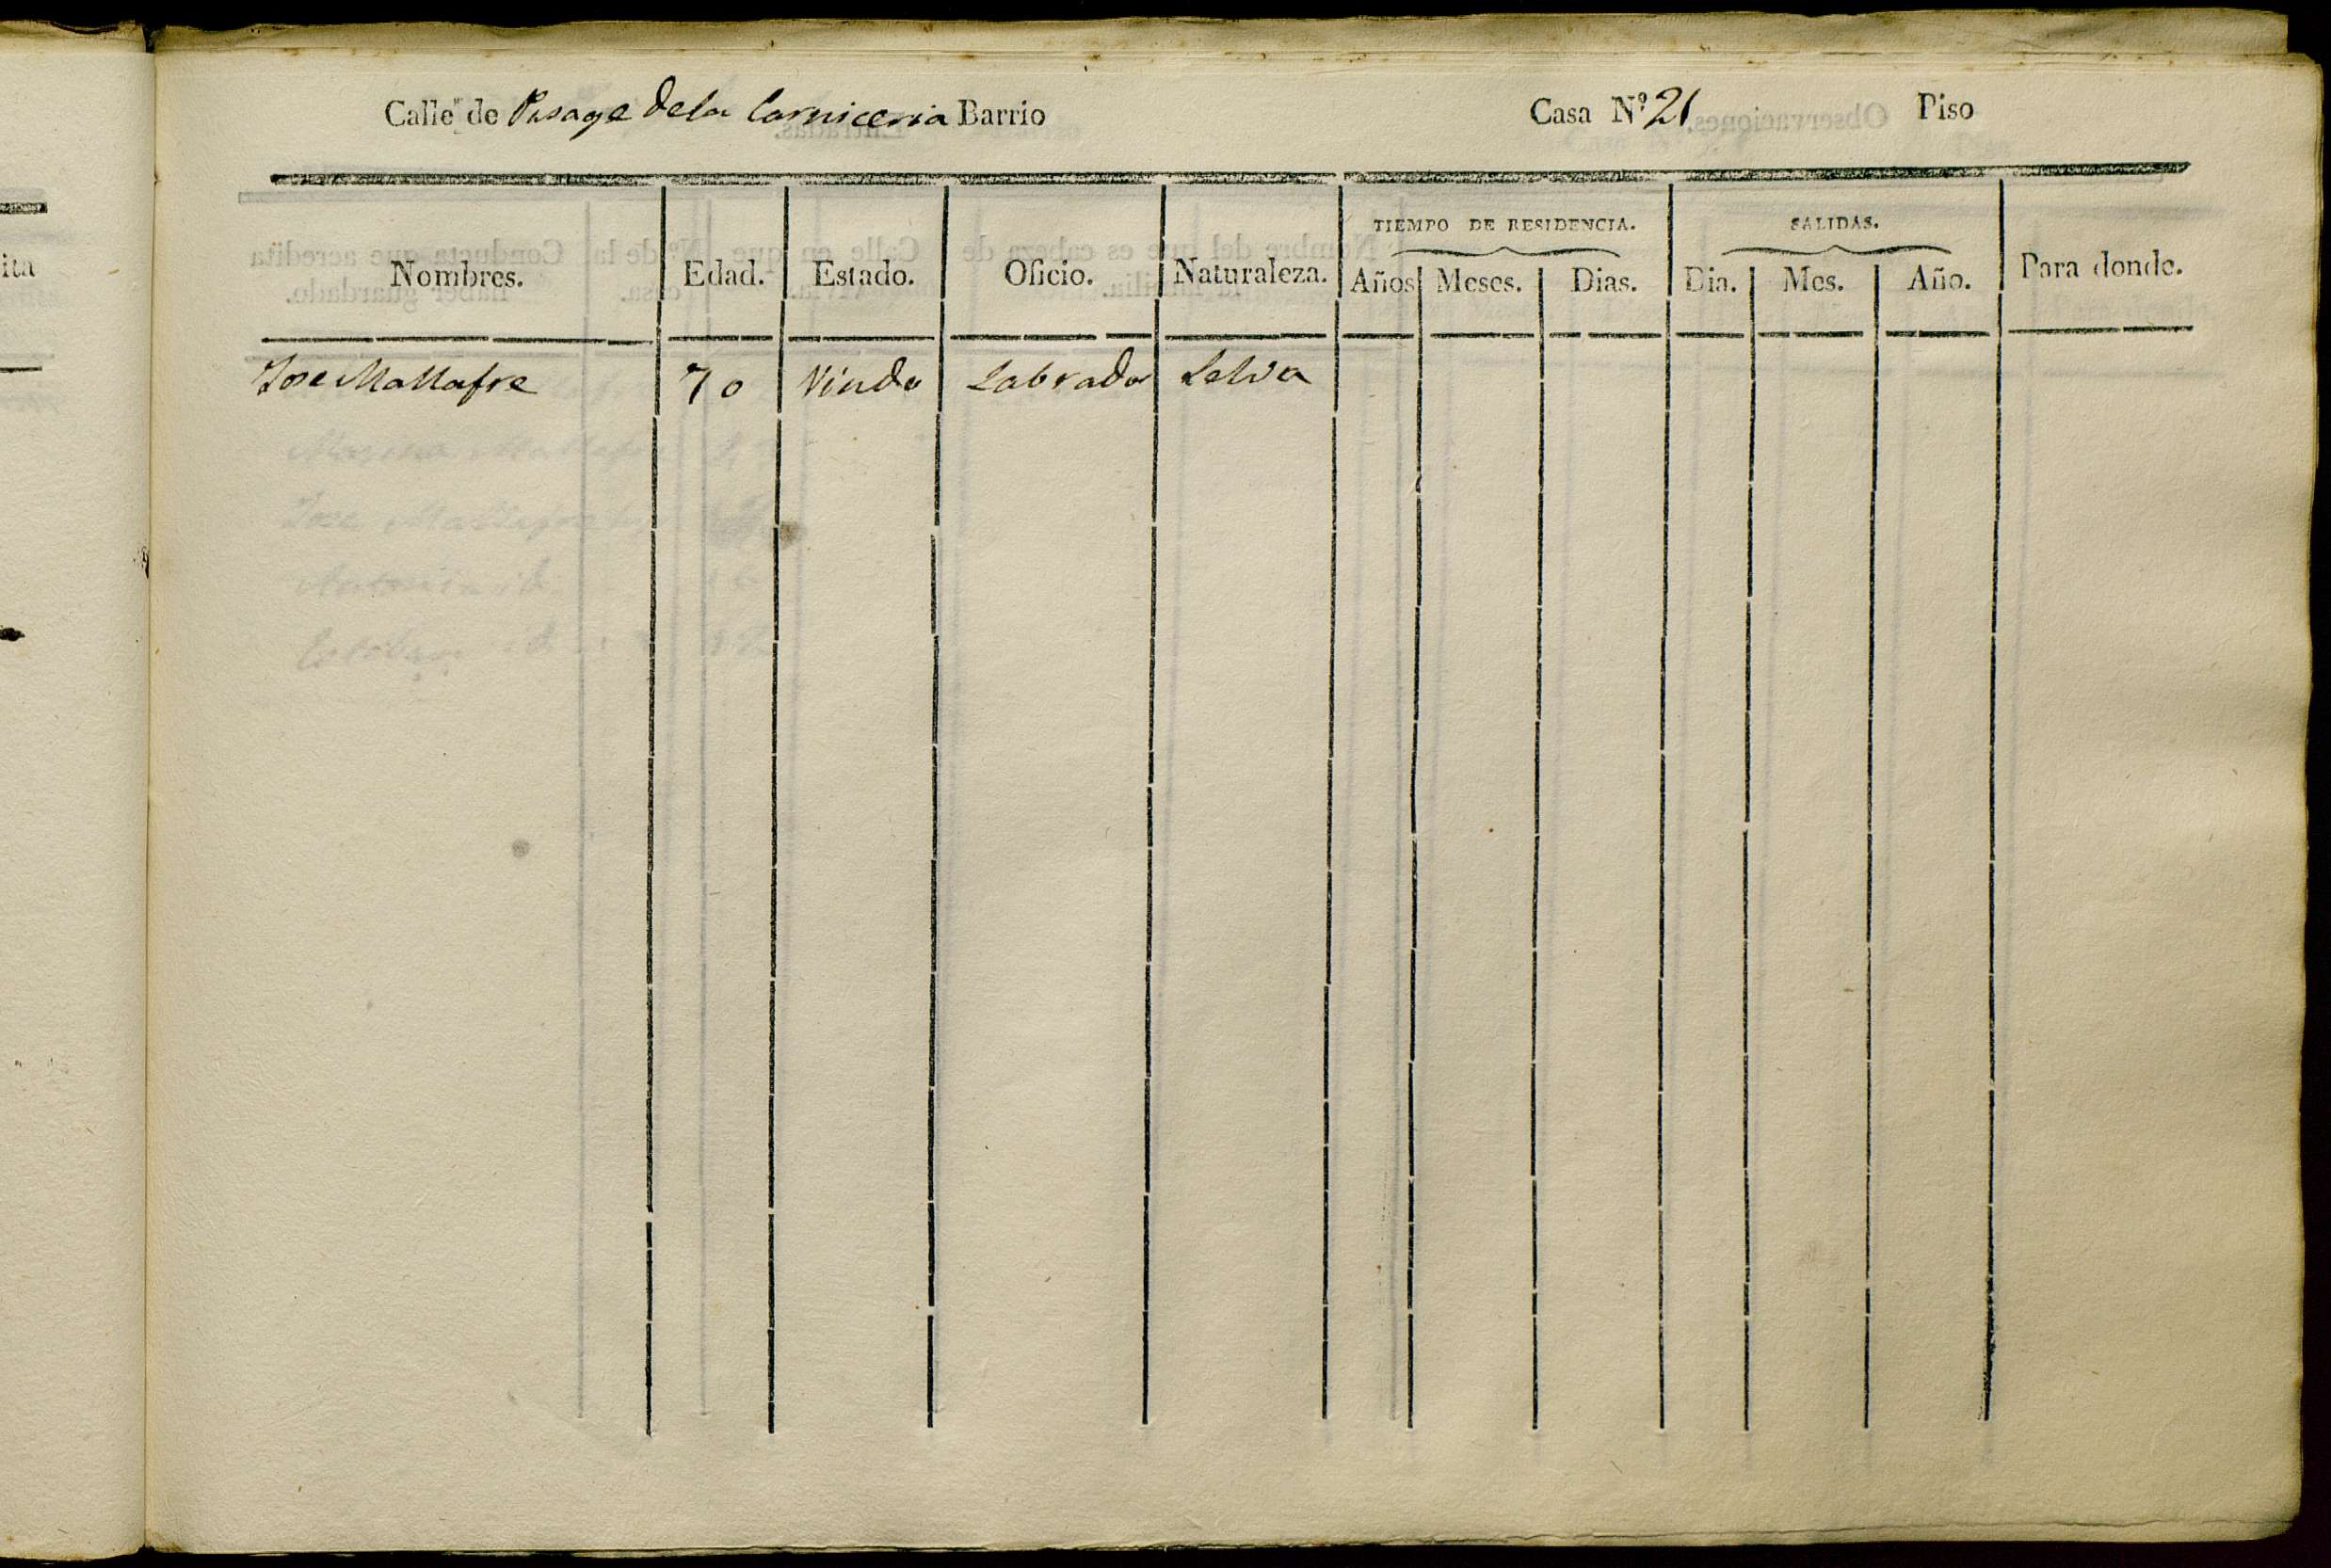 Calle de Pasage dela Carniceria Barrio Casa Nº 21 Piso
TIEMPO DE RESIDENCIA. SALIDAS.
Nombres. Edad. Estado. Oficio. Naturaleza. Años Meses. Dias. Dia. Mes. Año. Para donde.
Jose Mallafre 70 Viudo Labrador Selva
ita